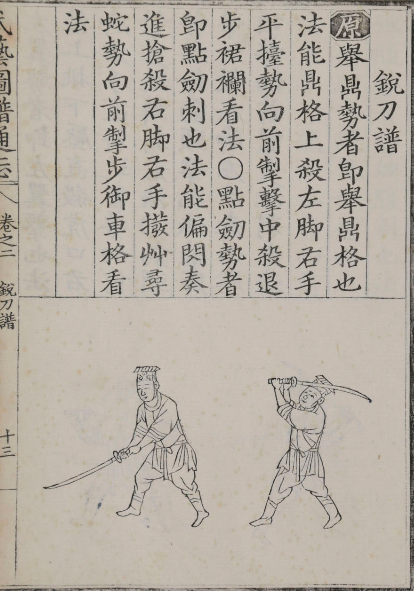 銳刀譜
原舉鼎勢者卽舉鼎格也
法能鼎格上殺左脚右手
平擡勢向前掣擊中殺退
步裙襴看法○點劒勢者
卽點劒刺也法能偏閃奏
進搶殺右脚右手撥艸尋
蛇勢向前掣步御車格看
法
武藝圖譜通志 卷之二 銳刀譜 十三